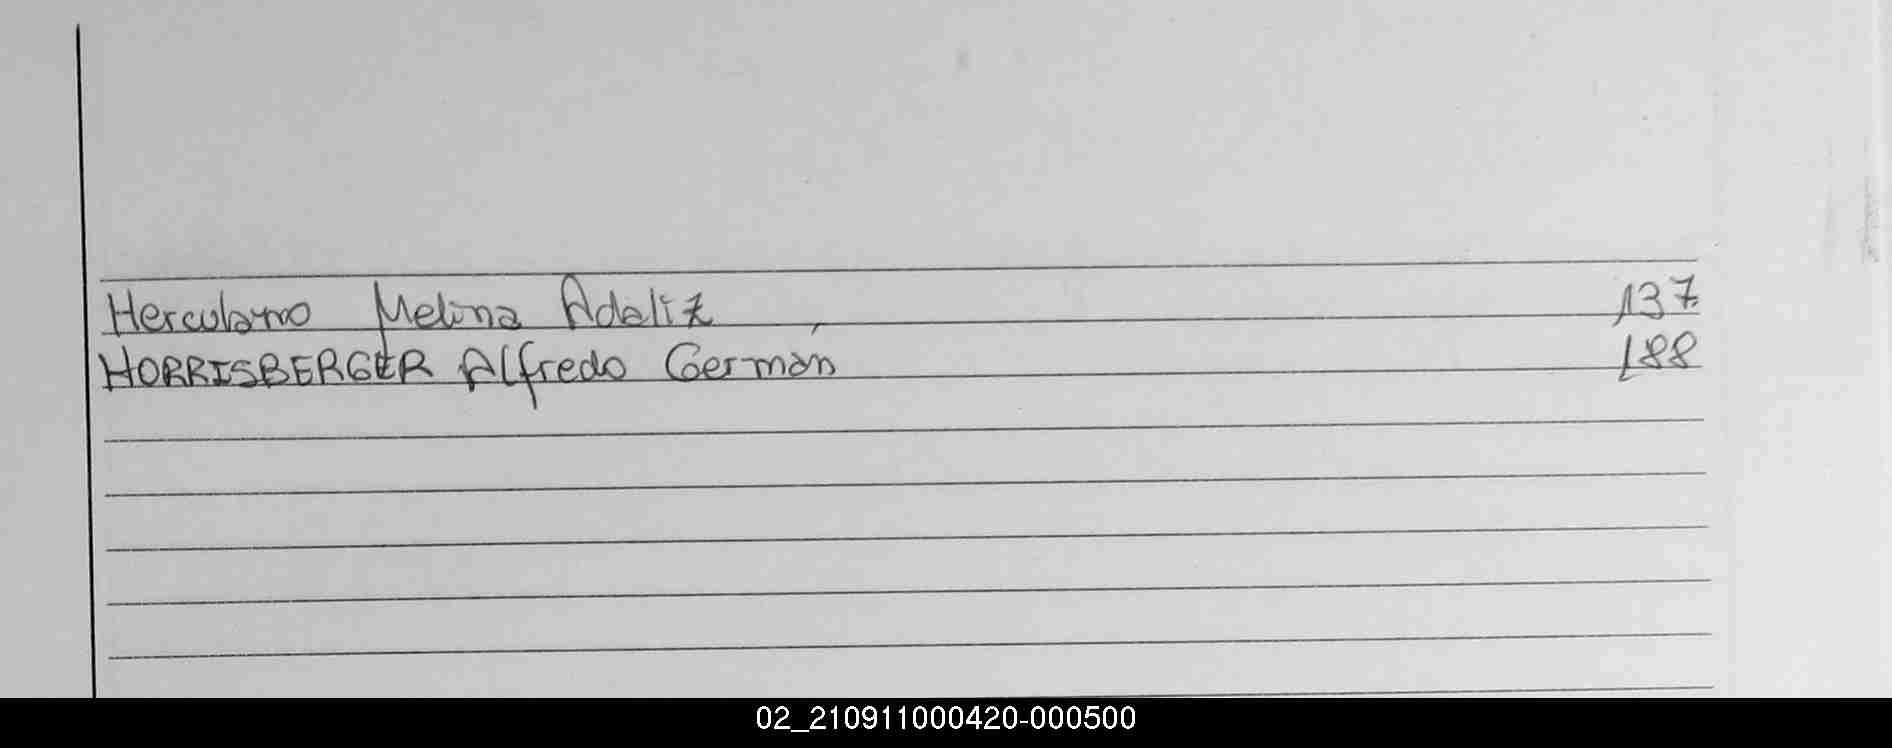 Herculano Melina Adaliz 137
HORRISBERGER Alfredo Germán 188
02_210911000420-000500